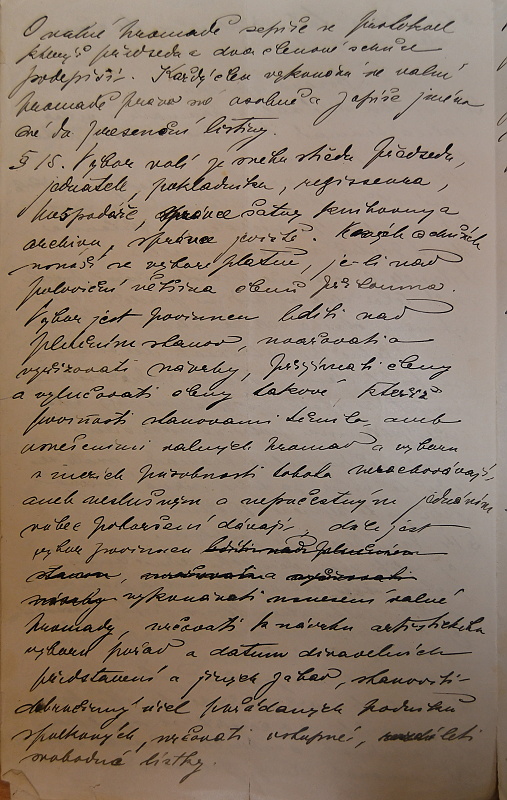 O valné hromadě sepíše se protokol
který předseda a dva členové schůze
podepíší. Každý člen vykonává ve valné
hromadě právo své osobně a zapíše jméno
své do presenční listiny.
§ 15. Výbor volí ze svého středu předsedu,
jednatele, pokladníka, regisseura,
hospodáře, správce šatny knihovny a
archivu, správce jeviště.
se výboru platně, je-li nad
poloviční většina členů přítomna.
Výbor jest povinen bdíti nad
plněním stanov, uvažovati a
vyřizovati návrhy, přijímati členy
a vylučovati členy takové kteříž
povinnosti stanovami těmito, aneb
usneseními valných hromad a výboru
v mezích působnosti tohoto nezachovávají,
aneb neslušným a nepočestným jednáním
vůbec pohoršení dávají, dále jest
výbor povinen bdíti nad plněním
stanov, uvažovati a vyřizovati
návrhy vykonávati usnesení valné
hromady, určovati k návrhu artistického
výboru pořad a datum divadelních
představení a jiných zábav, stanoviti
dobročinný účel pořádaných podniků
spolkových, určovati vstupné,
svobodné lístky.